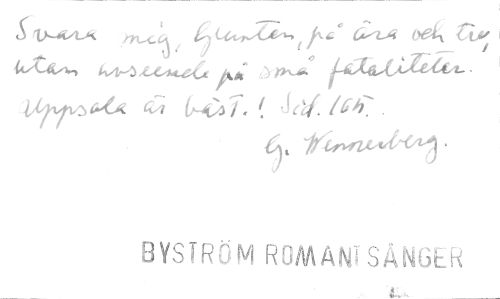 Svara mig, Glunten, på ära och tro,
utan avseende på små fataliteter.
Uppsala är bäst.! Sid. 105.
G. Wennerberg.
BYSTRÖM ROMANTSÅNGER